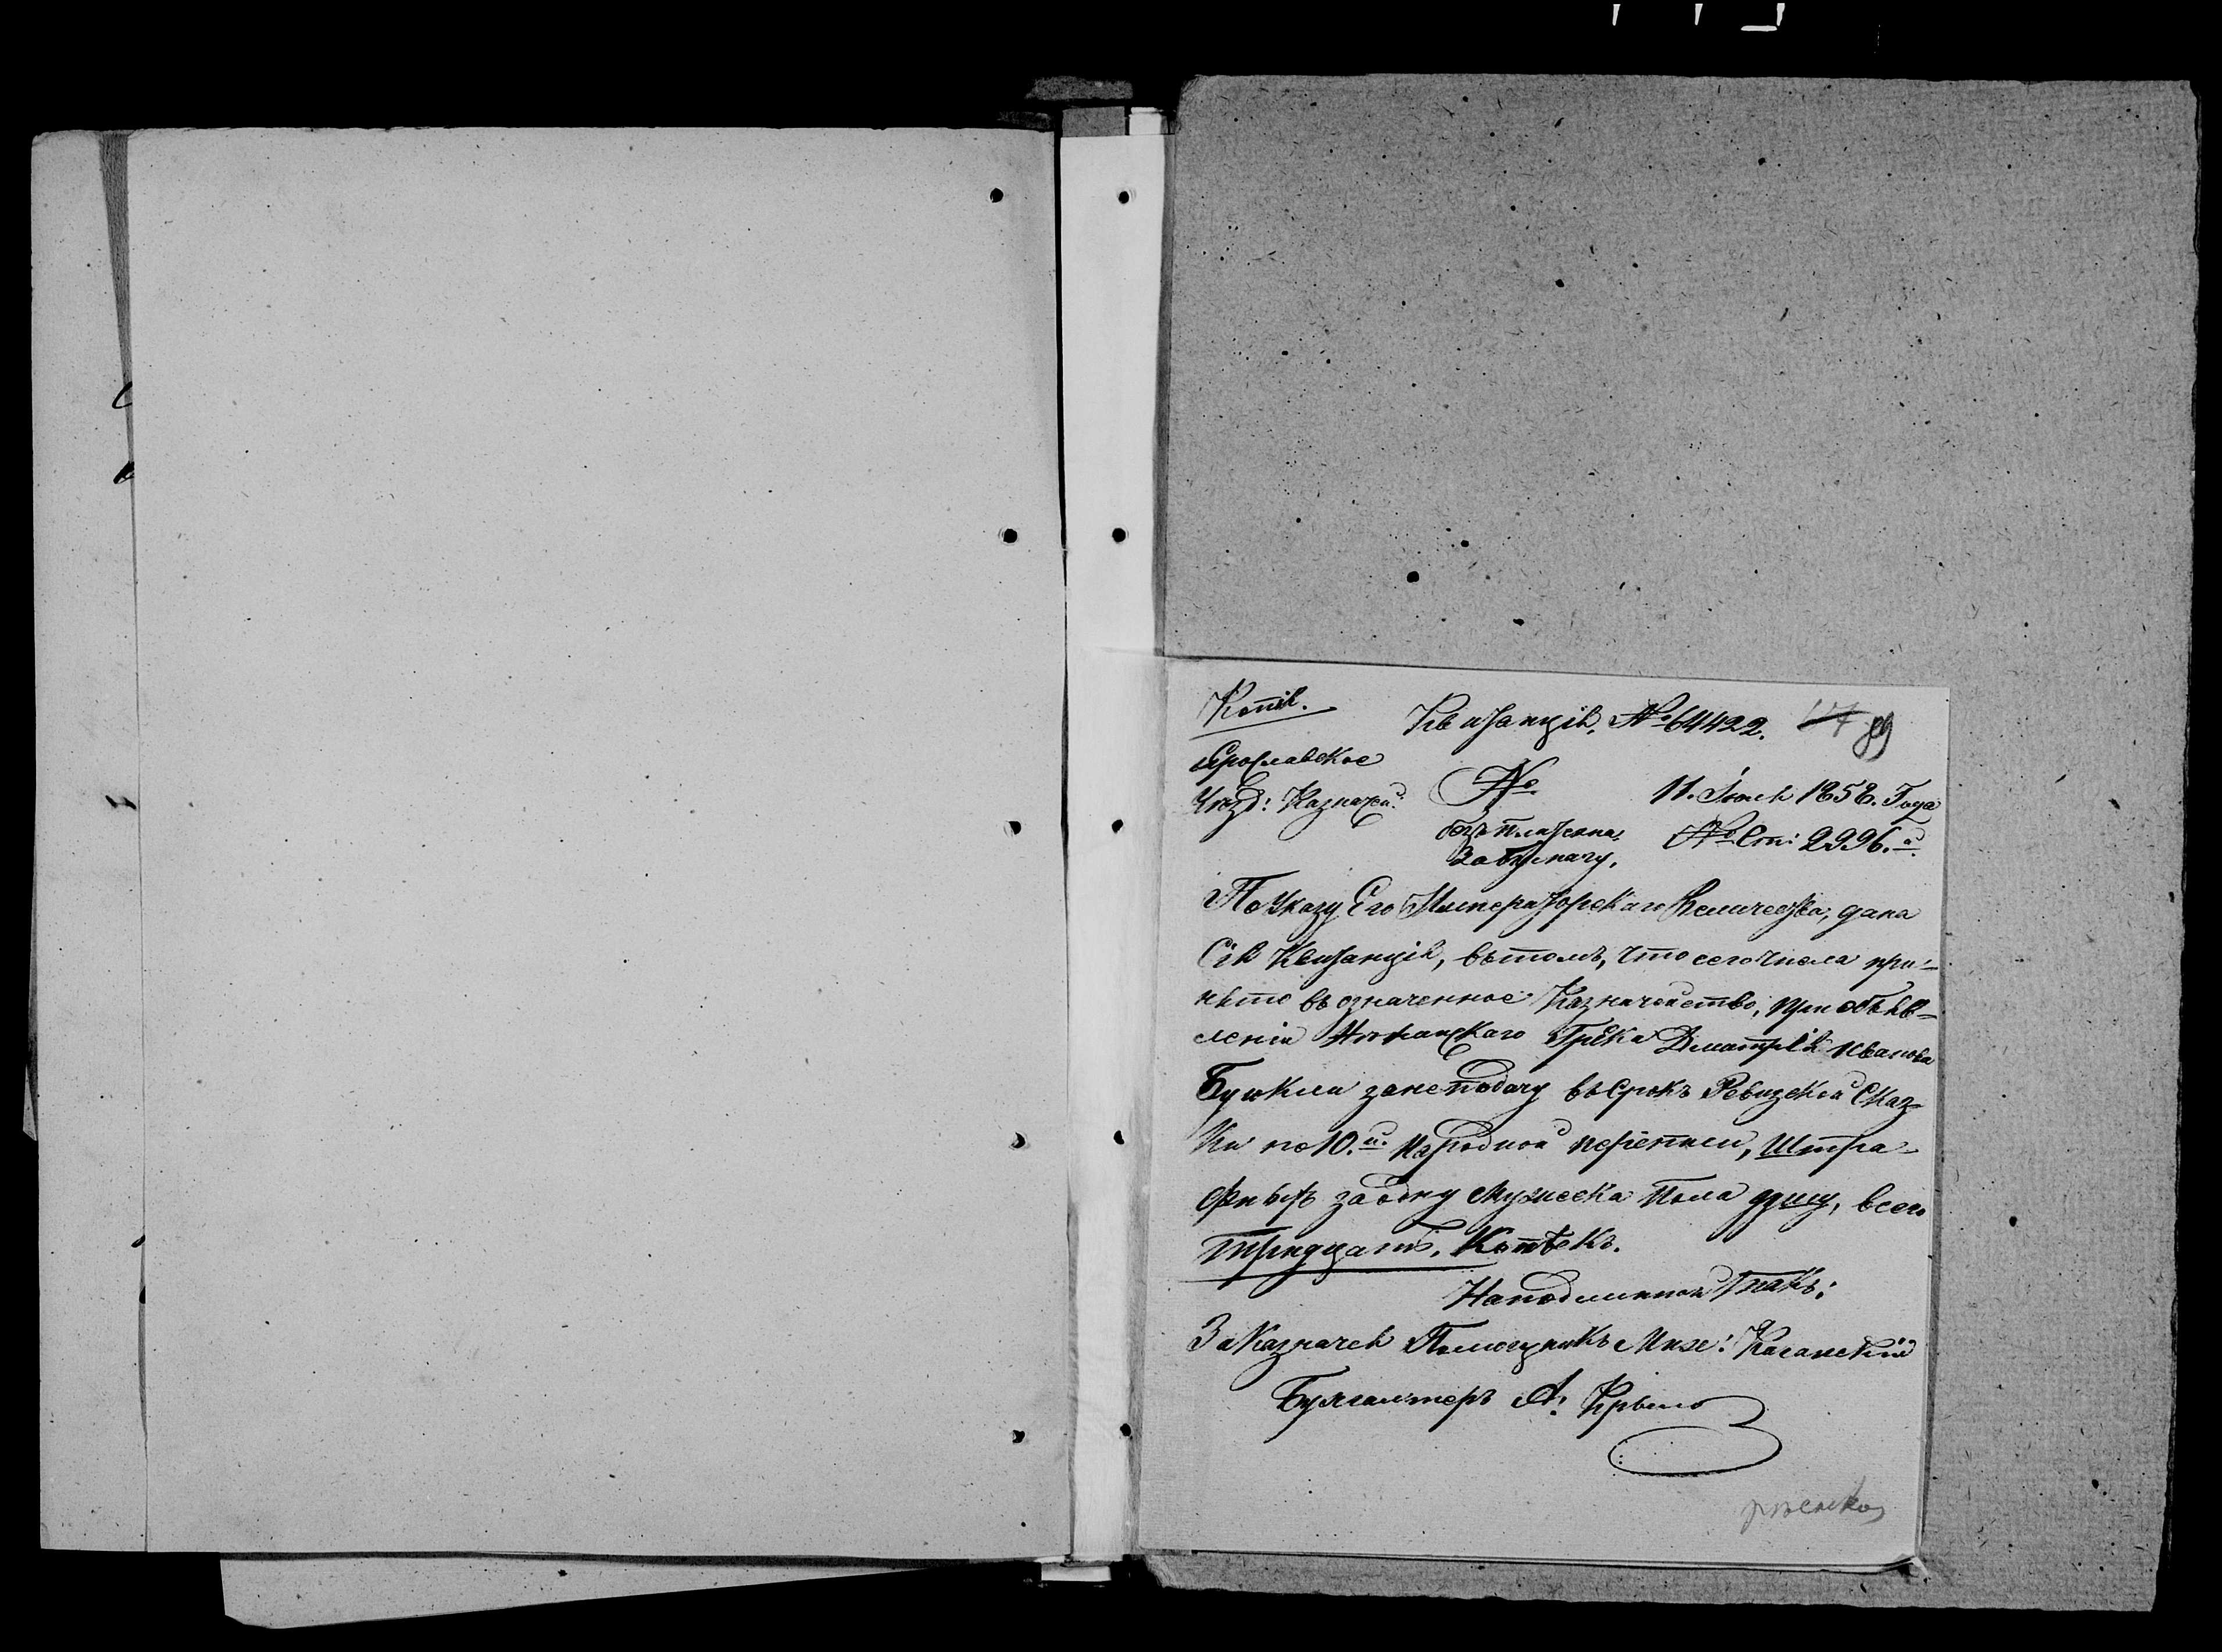 Копія.
Квитанція, № 64422. 89
Ярославское
Уѣзд: Казначей: № 11. Іюня 1858. Года
безъ платежа № Ст: 2996.й
За бумагу,
По указу Его Императорскаго Величества, дана
Сія Квитанція, въ томъ, что сего числа при-
нято въ означенное Казначейство, при объяв-
леніи Грека Дмитрія Иванова
за неподачу въ срокъ Ревизской Сказ-
ки по 10.й народной переписи, Штра-
фныхъ за одну мужеска пола душу, всего
тридцать, Копѣекъ.
На подлинной такъ:
За Казначея Помощникъ Мих: Казанскій
Бухгалтеръ А: